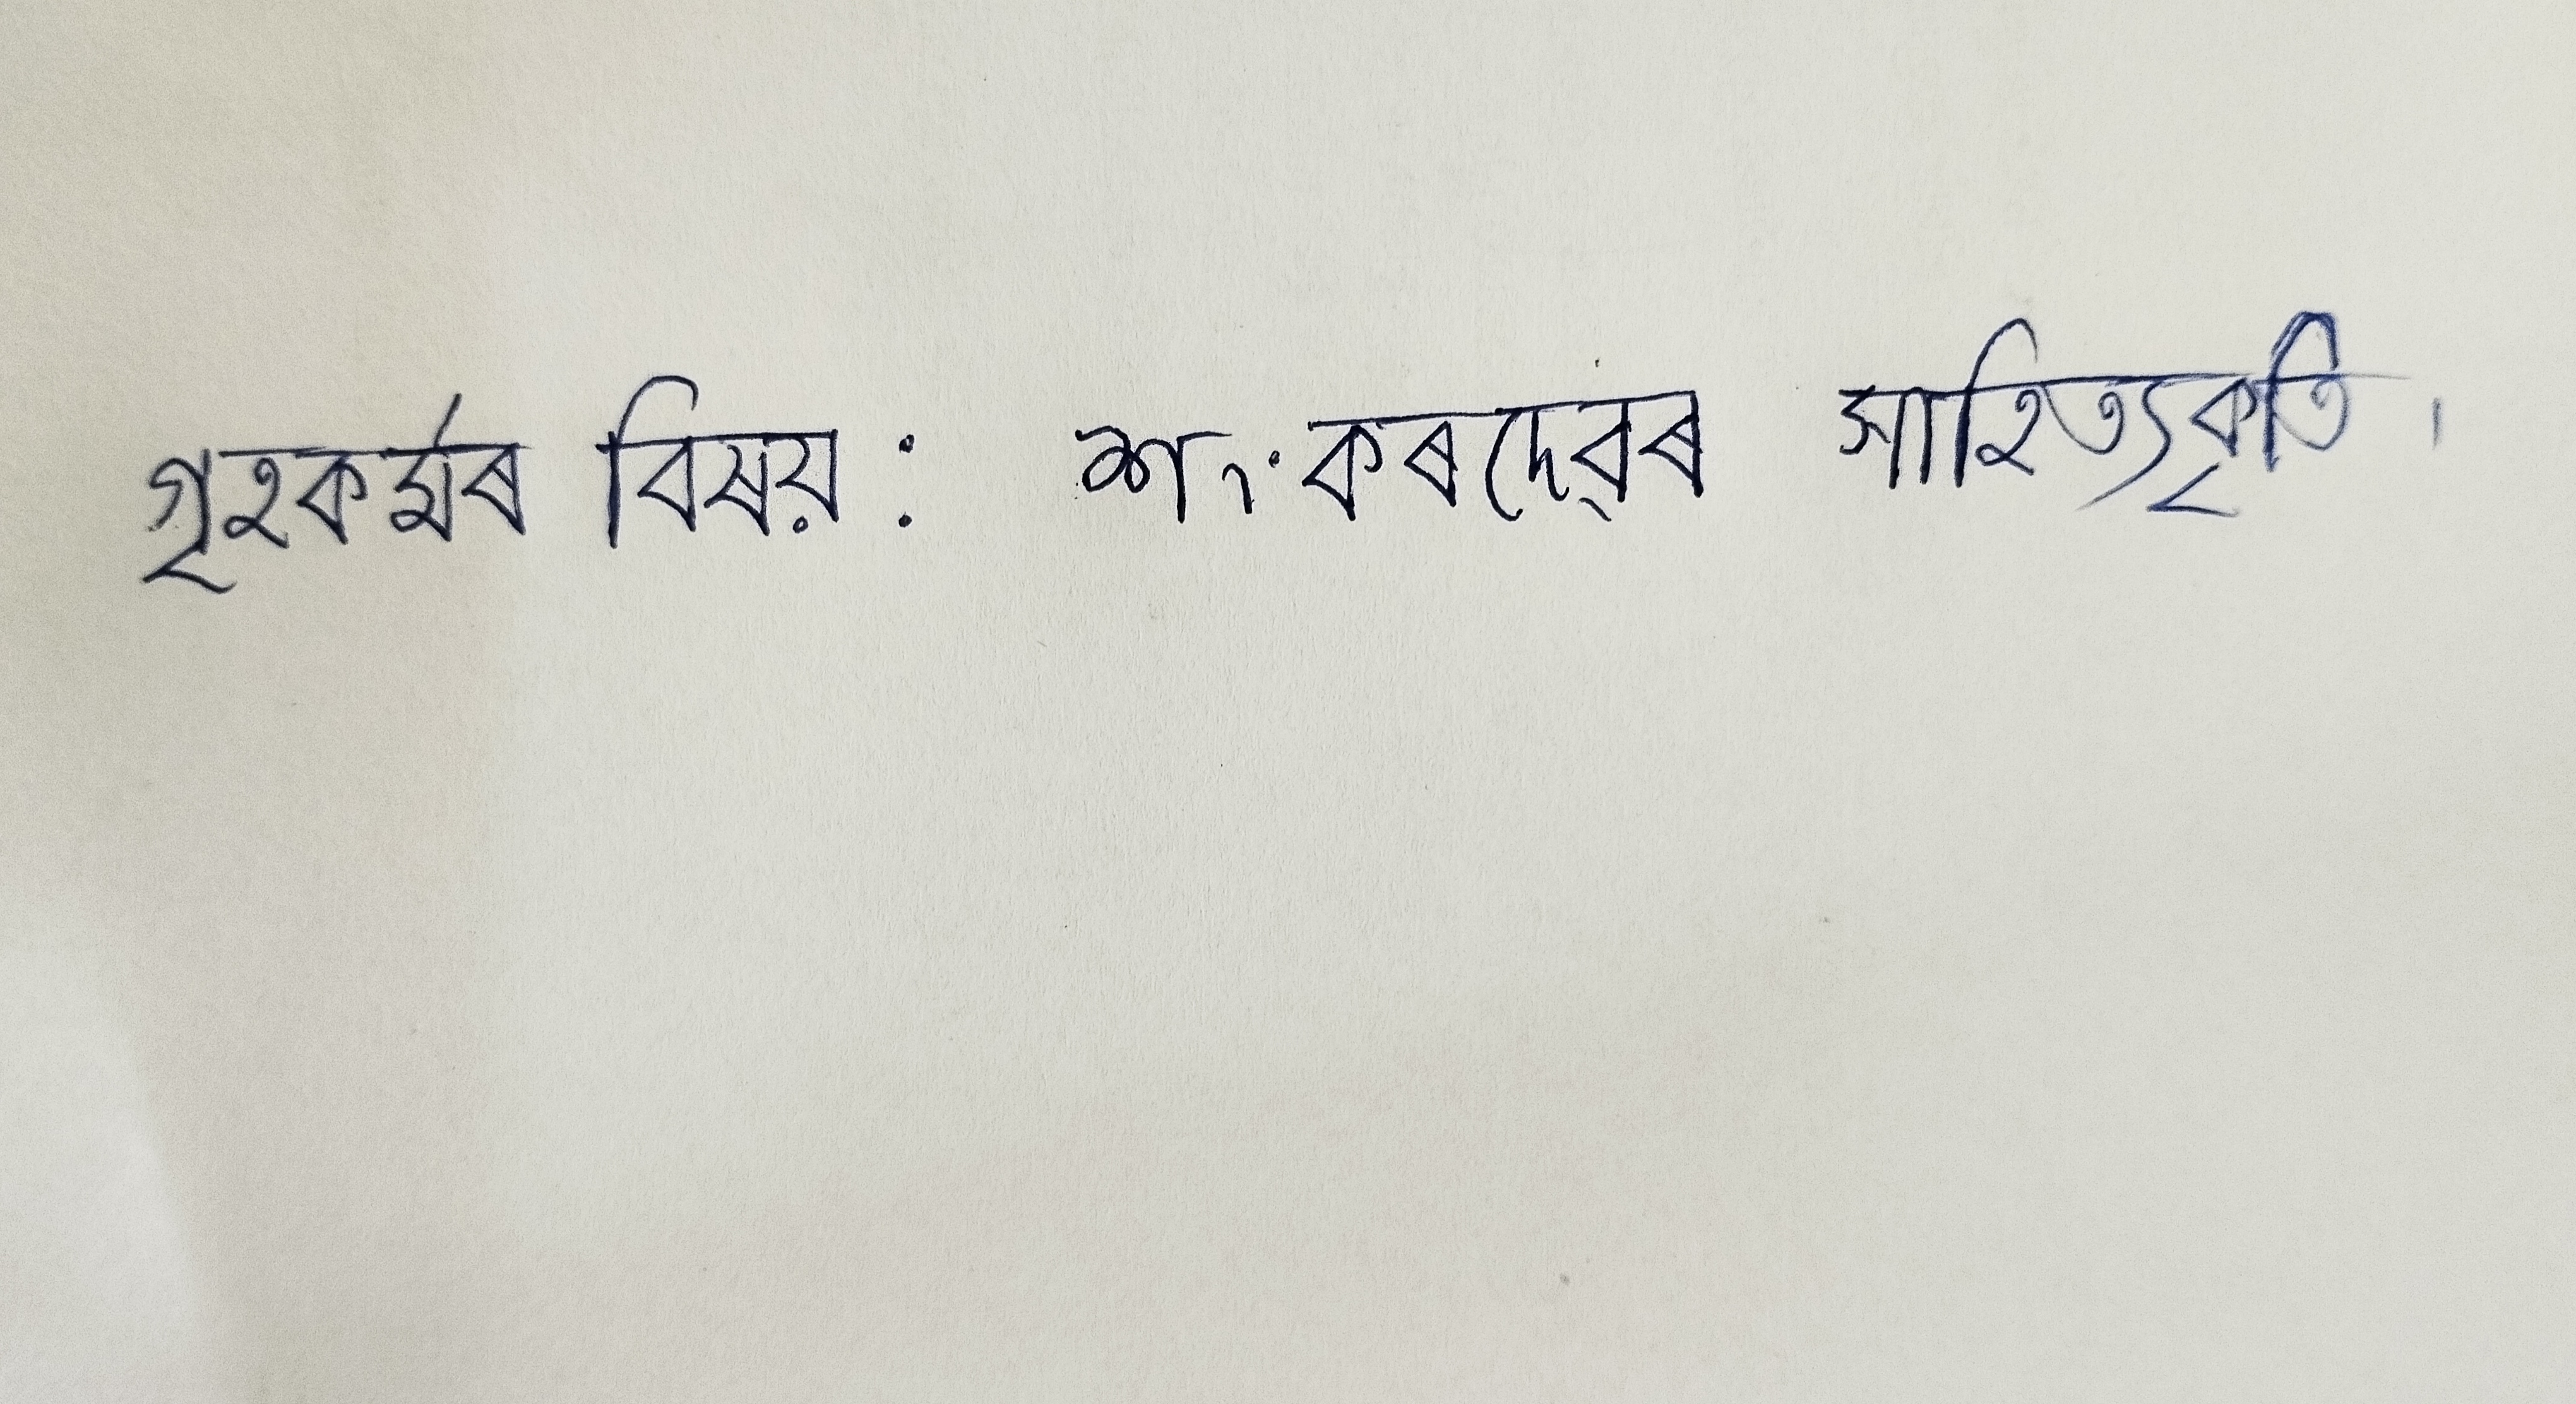 গৃহকৰ্মৰ বিষয় : শংকৰদেৱৰ সাহিত্যকৃতি ।